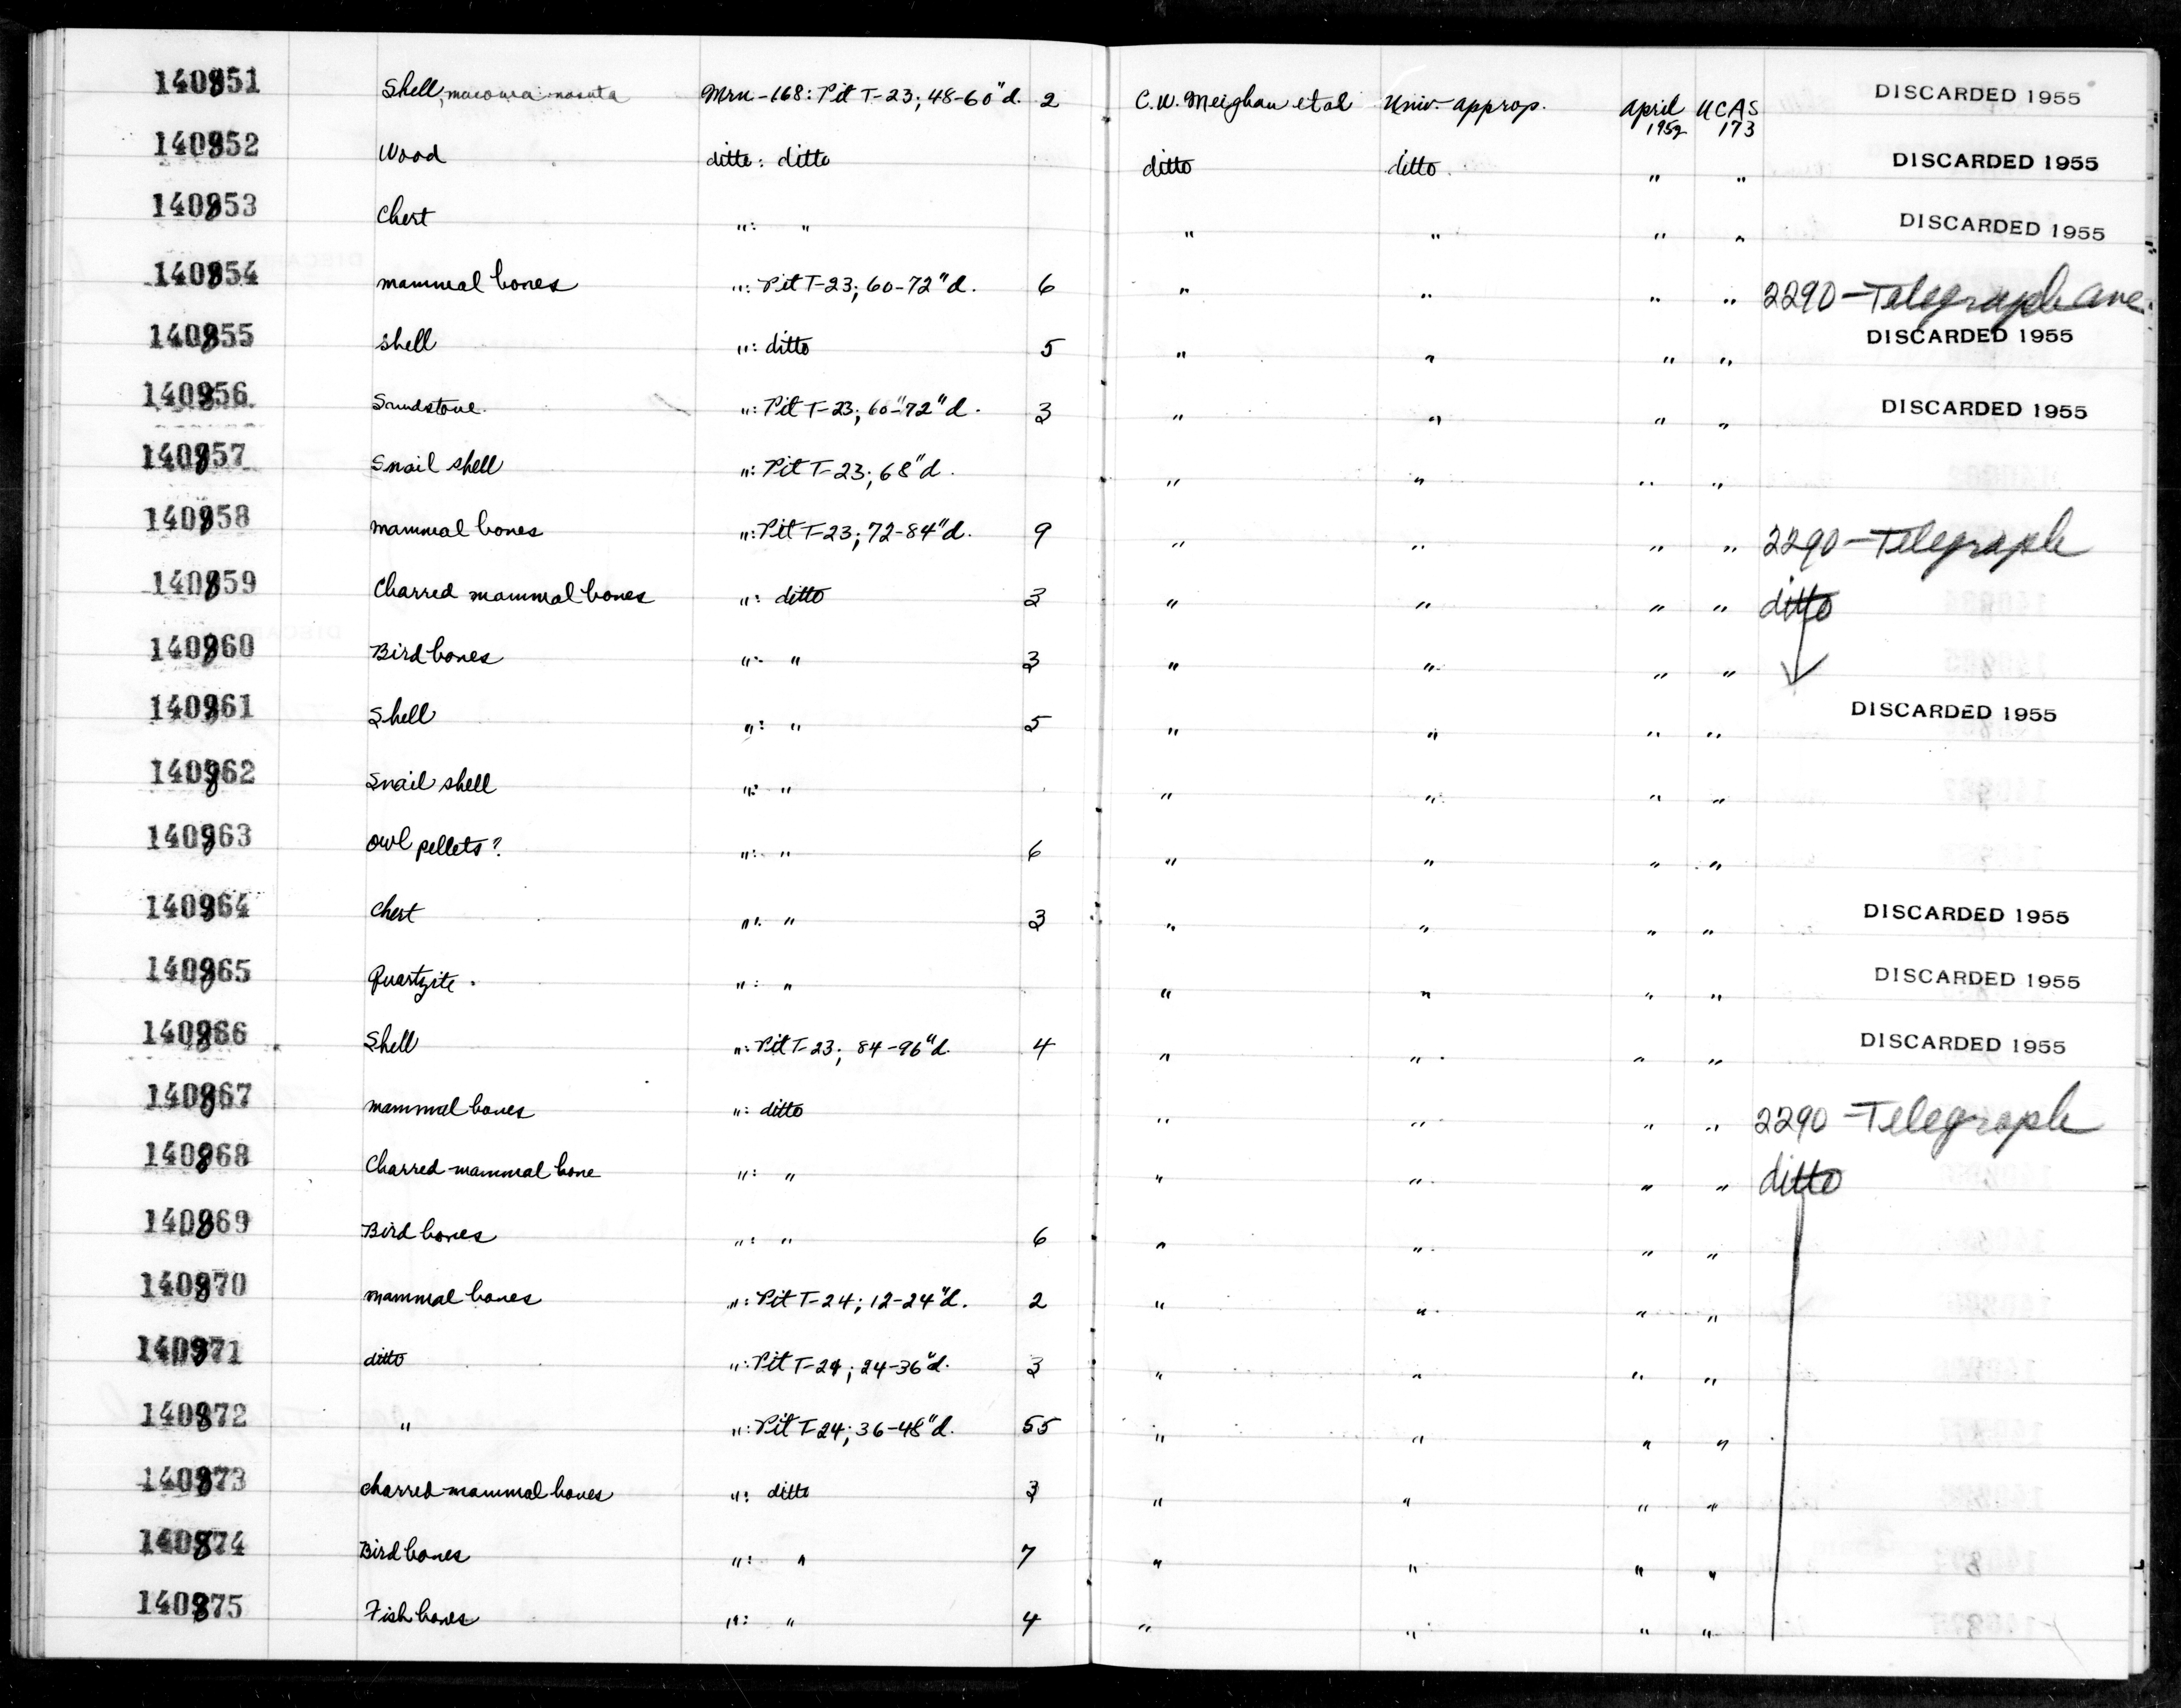 140851 Shell, macoma nasuta Mrn-168: Pit T-23; 48-60"d. 2 C.W. Meighan et al Univ. approp. April 1952 UCAS 173 DISCARDED 1955
140852 Wood ditto: ditto ditto ditto " " DISCARDED 1955
140853 Chert ": " " " " " DISCARDED 1955
140854 mammal bones ": Pit T-23; 60-72"d. 6 " " " " 2290-Telegraph Ave.
140855 shell ": ditto 5 " " " " DISCARDED 1955
140856 Sandstone ": Pit T-23; 60"-72"d. 3 " " " " DISCARDED 1955
140857 Snail shell ": Pit T-23; 68"d. " " " "
140858 mammal bones ": Pit T-23; 72-84"d. 9 " " " " 2290-Telegraph
140859 Charred mammal bones ": ditto 3 " " " " ditto
140860 Bird bones ": " 3 " " " "
140861 Shell ": " 5 " " " " DISCARDED 1955
140862 Snail shell ": " " " " "
140863 owl pellets? ": " 6 " " " "
140864 Chert ": " 3 " " " " DISCARDED 1955
140865 Quartzite ": " " " " " DISCARDED 1955
140866 Shell ": Pit T-23; 84-96"d. 4 " " " " DISCARDED 1955
140867 mammal bones ": ditto " " " " 2290-Telegraph
140868 Charred mammal bone ": " " " " " ditto
140869 Bird bones ": " 6 " " " "
140870 mammal bones ": Pit T-24; 12-24"d. 2 " " " "
140871 ditto ": Pit T-24; 24-36"d. 3 " " " "
140872 " ": Pit T-24; 36-48"d. 55 " " " "
140873 charred mammal bones ": ditto 3 " " " "
140874 Bird bones ": " 7 " " " "
140875 Fish bones ": " 4 " " " "